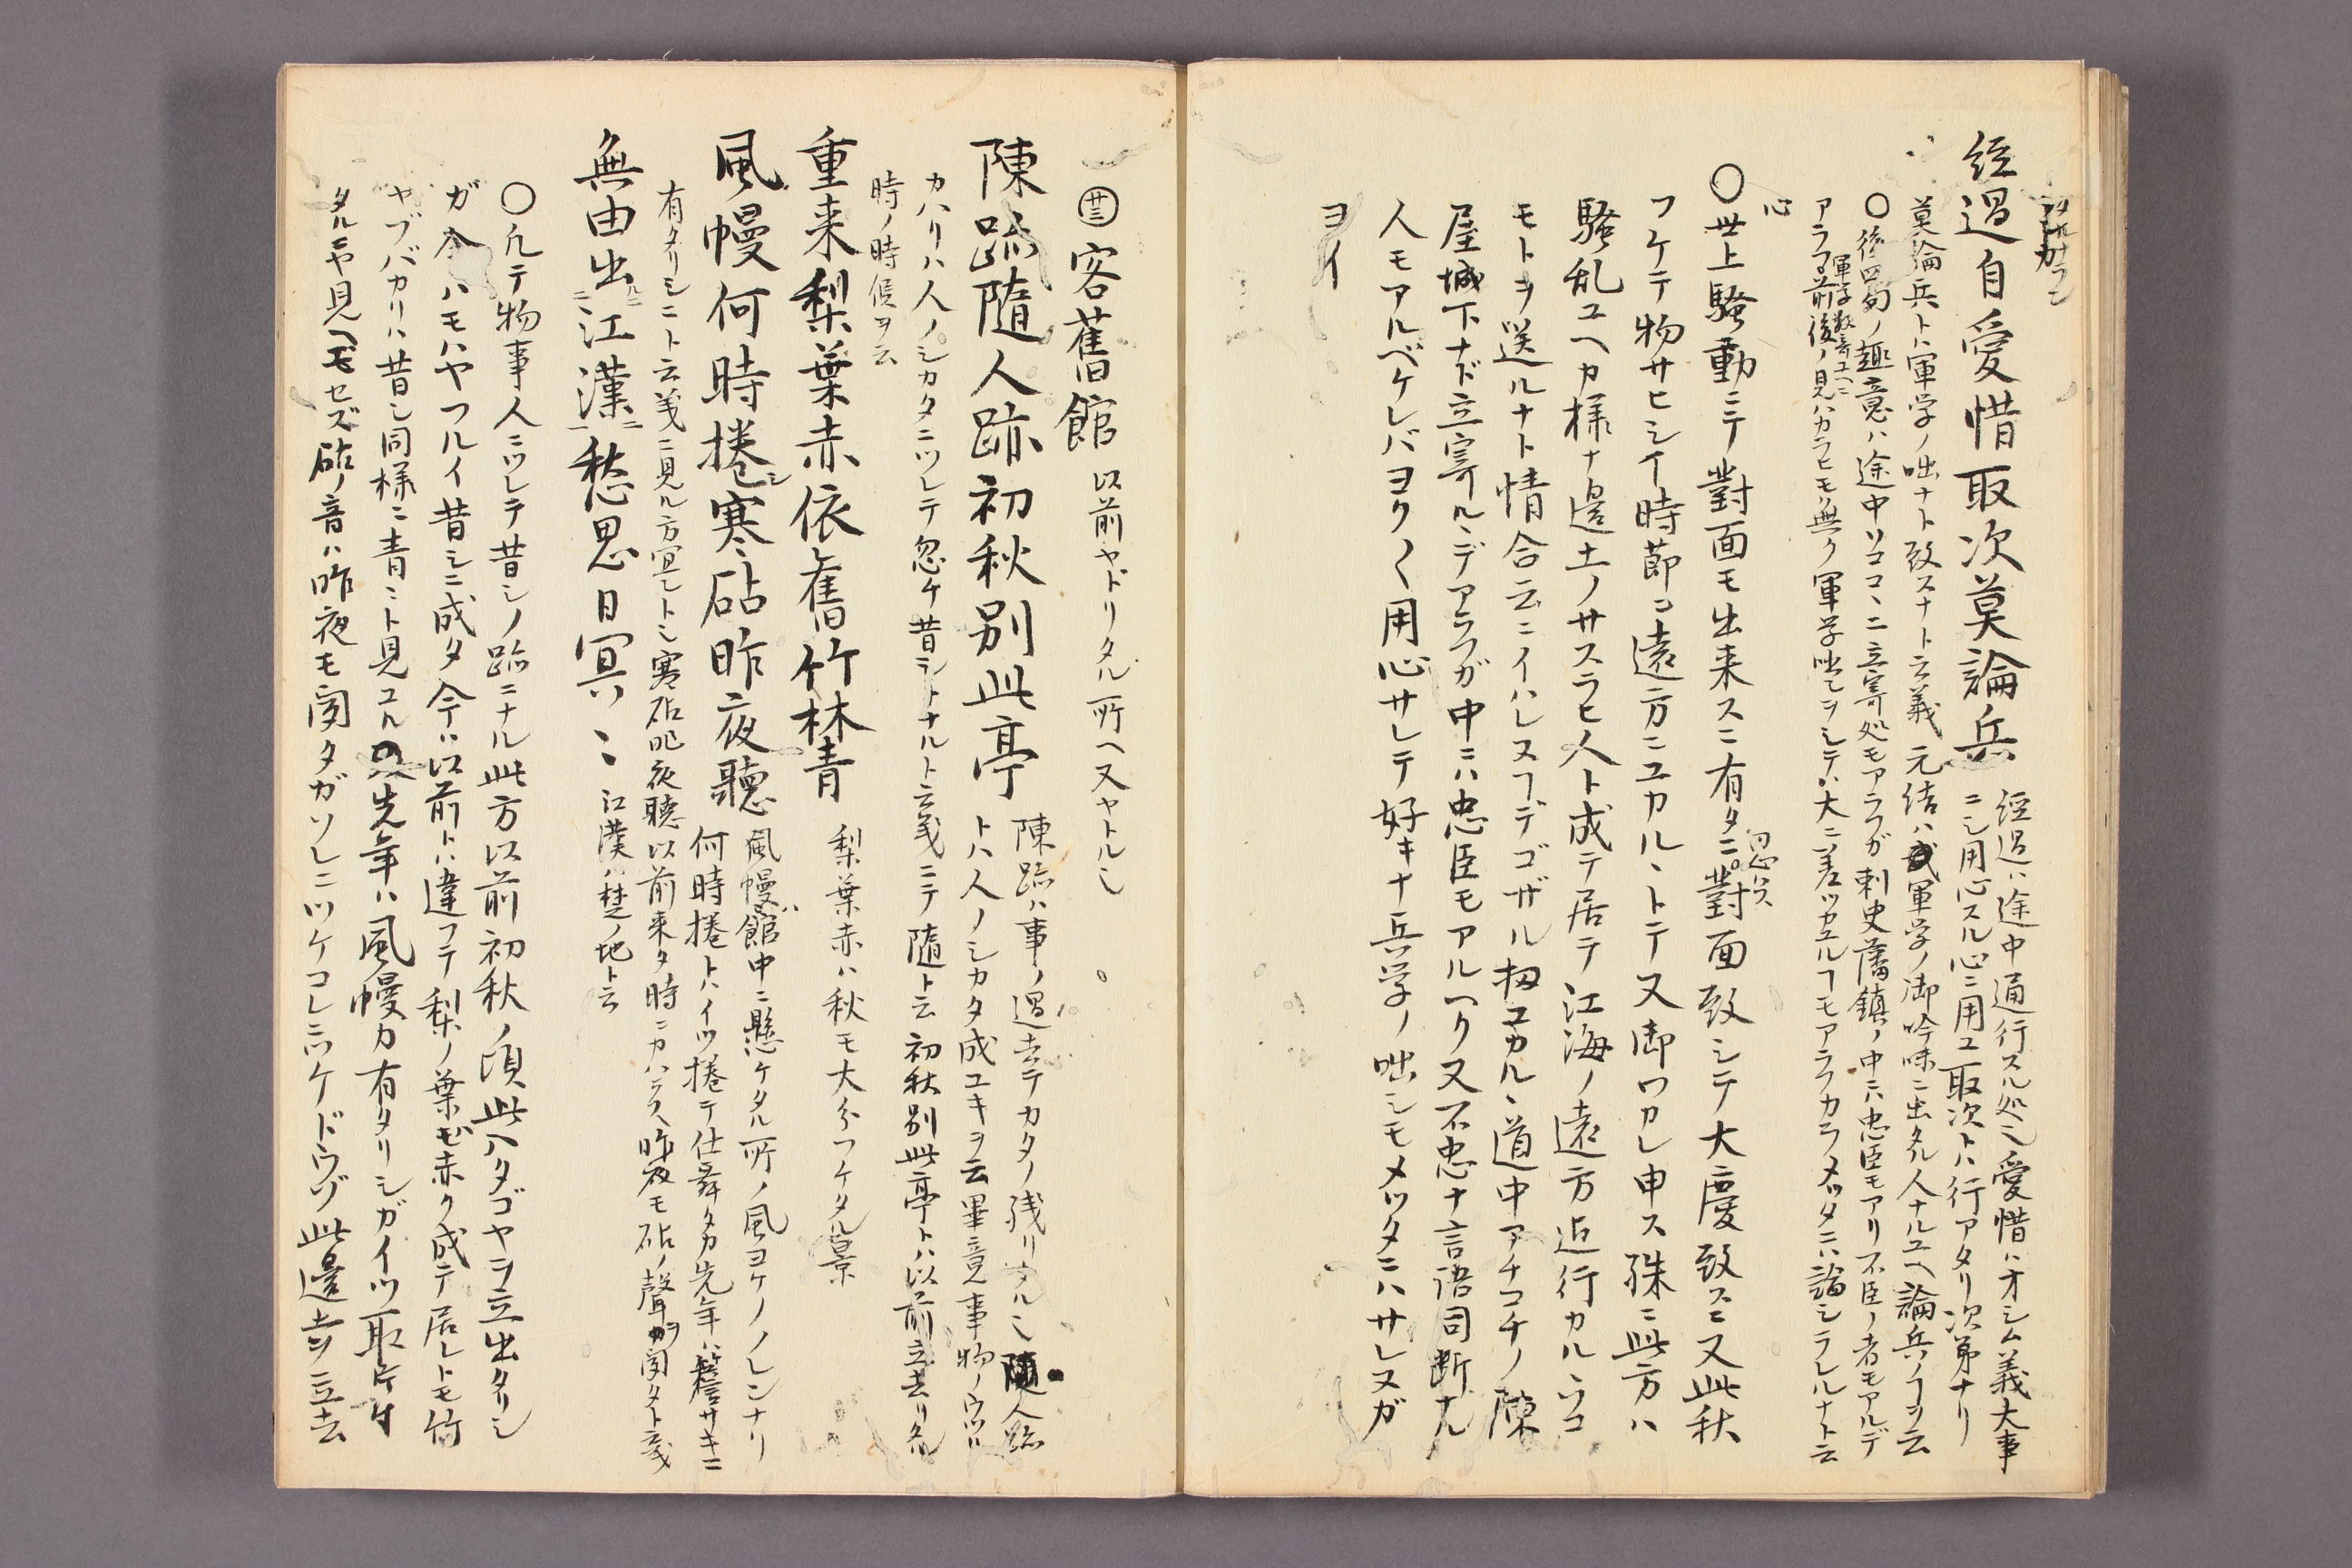 経過自愛惜取次莫論兵
経過ハ途中通行スル処ニ愛惜ハオシム義大事
ニシ用心スル心ニ用ユ取次トハ行アタリ次第ナリ
莫論兵ト軍学ノ咄ナト致スナト云義元結ハ軍学ノ御吟味ニ出タル人ナルユヘ論兵ノヿヲ云
○後四句ノ趣意ハ途中ソココヽニ立寄処モアラフガ刺史藩鎮ノ中ニハ忠臣モアリ不臣ノ者モアルデ
アラフ前後ノ見ハカラヒモ無ク軍学咄シヲシテハ大ニ差ツカエルヿモアラフカラメッタニハ論シラレルナト云
心
○世上騒動ニテ對面モ出来スニ有タニ對面致シテ大慶致スニ又此秋
フケテ物サヒシイ時節ニ遠方ニユカルヽトテ又御ワカレ申ス殊ニ此方ハ
騒乱ユヘカ様ナ邊土ノサスラヒ人ト成テ居テ江海ノ遠方迠行カルヽヲコ
モトヲ送ルナト情合云ニイハレヌヿデゴザル扨ユカルヽ道中アチコチノ陳
屋城下ナド立寄ルヽデアラフガ中ニハ忠臣モアルヘク又不忠ナ言語同断ナル
人モアルベケレバヨク〱用心サレテ好キナ兵学ノ咄シモメッタニハサレヌガ
ヨイ
㊂客舊館 以前ヤドリタル所ヘ又ヤトルニ
陳跡隨人跡初秋別此亭
陳跡ハ事ノ過去テカタノ残リタルニ隨人跡
トハ人ノシカタ成ユキヲ云畢竟事物ノウツリ
カハリハ人ノシカタニツレテ忽ケ昔シトナルト云義ニテ隨ト云初秋別此亭トハ以前立去リタル
時ノ時候ヲ云
重来梨葉赤依舊竹林青
梨葉赤ハ秋モ大分フケタル景
風幔何時捲寒砧昨夜聽
風幔ハ館中ニ懸ケタル所ノ風ヨケノノレンナリ
何時捲トハイツ捲テ仕舞タカ先年ハ簷サキニ
有タリシニト云義ニ見ル方宜シトニ寒砧昨夜聽以前来タ時ニカハラス昨夜モ砧ノ聲ヲ聞タト云義
無由出江漢愁思日冥ヽ
江漢ハ楚ノ地ト云
○凡テ物事人ニツレテ昔シノ跡ニナル此方以前初秋ノ頃此ハタゴヤヲ立出タリシ
ガ今ハモハヤフルイ昔シニ成タ今ハ以前トハ違フテ梨ノ葉モ赤ク成テ居レトモ竹
ヤブバカリハ昔シ同様ニ青ニト見ユル先年ハ風幔カ有タリシガイツ取片付
タルニヤ見ヘモセズ砧ノ音ハ昨夜モ聞タガソレニツケコレニツケドウゾ此邊土ヲ立去